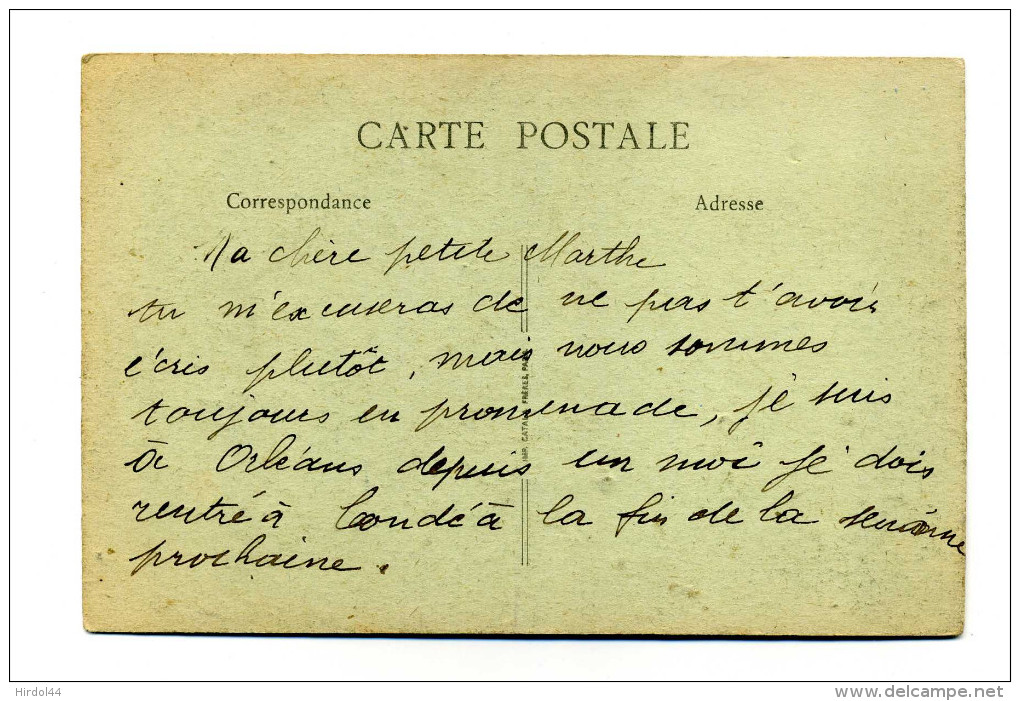 CARTE POSTALE
Correspondance
Adresse
Ma chère petite Marthe
tu m'excuseras de ne pas t'avoir
écris plutôt, mais nous sommes
toujours en promenade, je suis
à Orléans depuis un moi je dois
rentré à Condé à la fin de la semaine
prochaine.
IMP. CATALA FRÈRES, PARIS
Hirdol44
www.delcampe.net